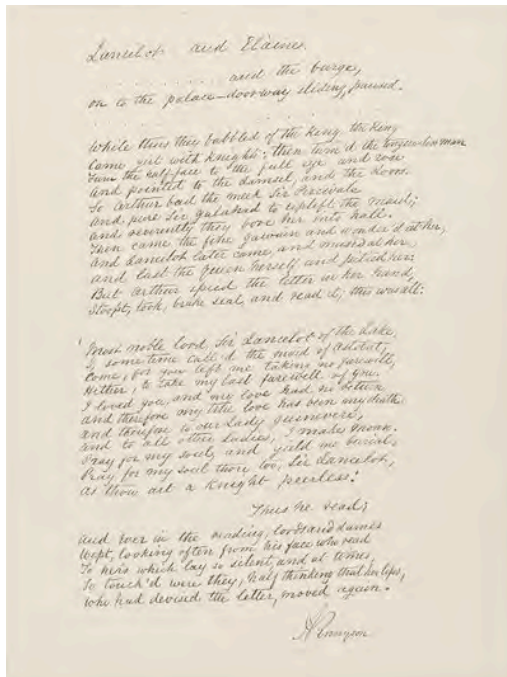 Lancelot and Elaine.
. . . . . . . . . and the barge,
on to the palace-doorway sliding, paused.
While thus they babbled of the King, the King
Came girt with knights: then turn'd the tongueless man
From the half-face to the full eye and rose
And pointed to the damsel, and the doors.
So Arthur bad the meek Sir Percivale
And pure Sir Galahad to uplift the maid;
And reverently they bore her into hall.
Then came the fine Gawain and wonder'd at her,
And Lancelot later came and mused at her,
And last the Queen herself and pitied her:
But Arthur spied the letter in her hand,
Stoopt, took, brake seal, and read it; this was all:
'Most noble lord Sir Lancelot of the Lake,
I, some time call'd the maid of Astolat,
Come, for you left me taking no farewell,
Hither, to take my last farewell of you.
I loved you, and my love had no return
And therefore my true love has been my death.
And therefore to our Lady Guinevere,
And to all other Ladies, I make moan.
Pray for my soul, and yield me burial,
Pray for my soul thou too, Sir Lancelot,
As thou art a Knight peerless.'
Thus he read;
And ever in the reading, lords and dames
Wept, looking often from his face who read
To hers which lay so silent, and at times,
So touch'd were they, half thinking that her lips,
Who had devised the letter, moved again.
ATennyson